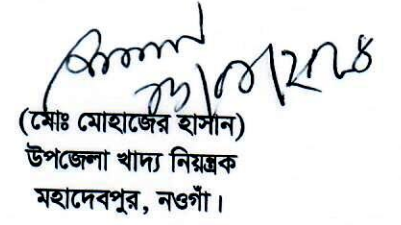 (মোঃ মোহাজের হাসান)
উপজেলা খাদ্য নিয়ন্ত্রক
মহাদেবপুর, নওগাঁ।